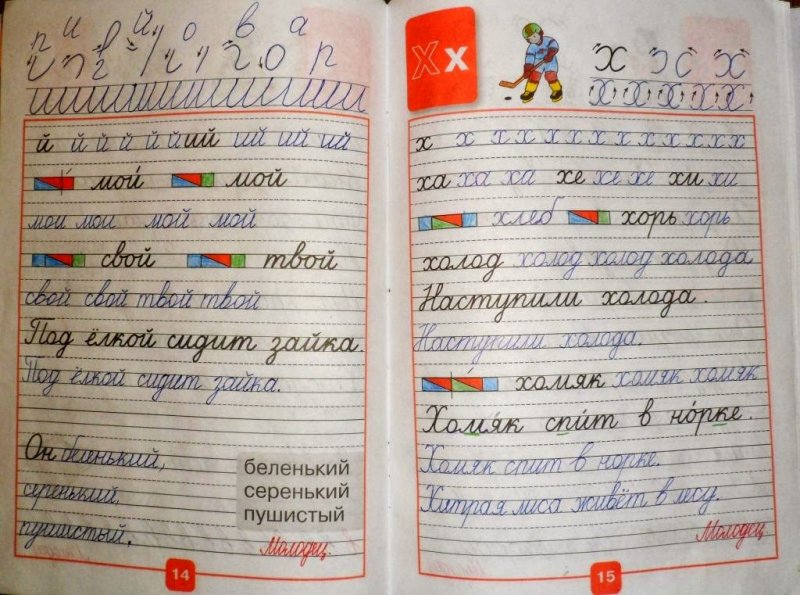 п и в й о в а
р
й й й й й й ий ий ий ий
мои мой
мои мои мой мой
свой твой
свой свой твой твой
Под ёлкой сидит зайка.
Под ёлкой сидит зайка.
Он беленький,
серенький,
пушистый.
беленький
серенький
пушистый
Молодец
14
Х х
х х с х
х х х х х
х х х х х х х х х х х х х
ха ха ха хе хе хе хи хи
хлеб хорь хорь
холод холод холод холода
Наступили холода.
Наступили холода.
хомяк хомяк хомяк
Хомя́к спи́т в но́рке.
Хомяк спит в норке.
Хитрая лиса живёт в лесу.
Молодец
15